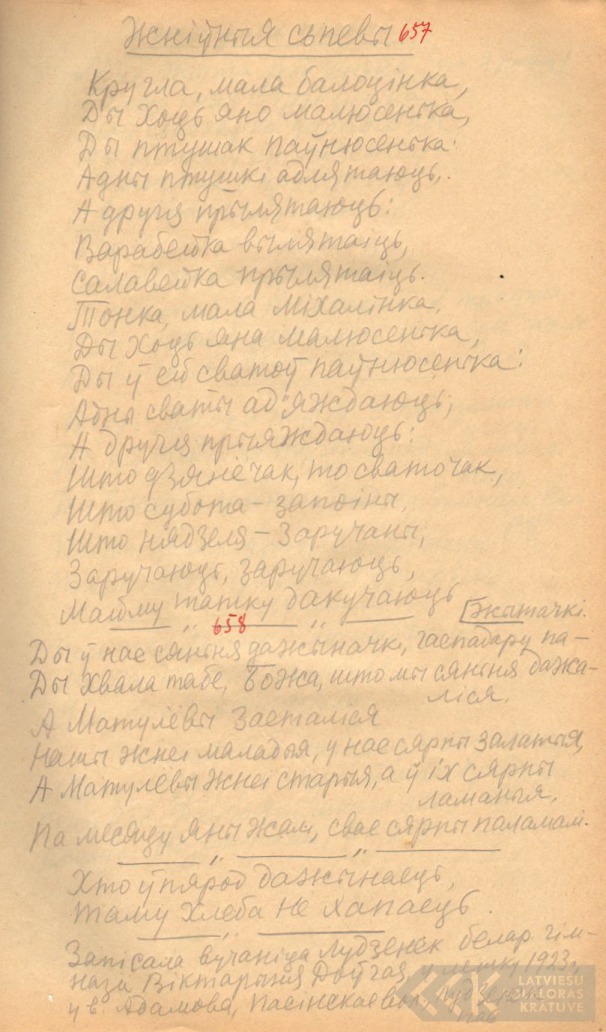 Жніўныя сьпевы 657
Кругла, мала балоцінка,
Ды Хоць яно малюсенька,
Ды птушак паўнюсенька.
Адны птушкі адлятаюць,
А другія прылятаюць:
Варабейка вылятаіць,
Салавейка прылятаіць.
Тонка, мала Міхалінка,
Ды Хоць яна малюсенька,
Ды ў ей сватоў паўнюсенька:
Адны сваты ад'яждаюць,
А другія прыяждаюць:
Што дзянёчак, то сваточак,
Што субота - запоіны,
Што нядзеля - Заручаны,
Заручаюць, заручаюць,
Майму татку дакучаюць
658
[жыточкі.
Ды ў нас сяньня дажыначк, гаспадару па-
Ды Хвала табе, Божа, што мы сяньня дажа-
ліся,
А Матулёвы Засталіся
Нашы жнеі маладыя, у нас сярпы залатыя,
А Матулевы жнеі старыя, а ў іх сярпы
ламаныя,
Па месяцу яны жалі, свае сярпы паламалі.
Хто ўпярод дажынаець,
Таму хлеба не хапаець.
Запісала вучаніца Лудзенск белар гім-
назіі Вікторыя Доўгая, у летку 1923 г,
у в. Адамова, Пасінскае вол,
LATVIEŠU
FOLKLORAS
KRĀTUVE